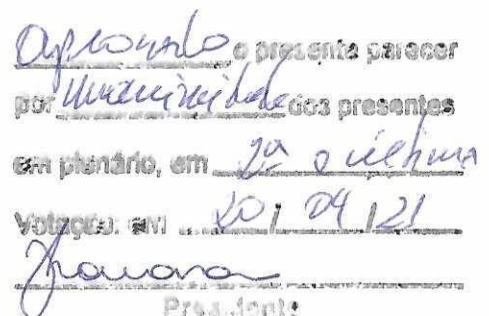 Aprovado o presente parecer
por Unanimidade dos presentes
em plenário, em 2ª e última
Votação: em 20 / 04 / 21
Presidente